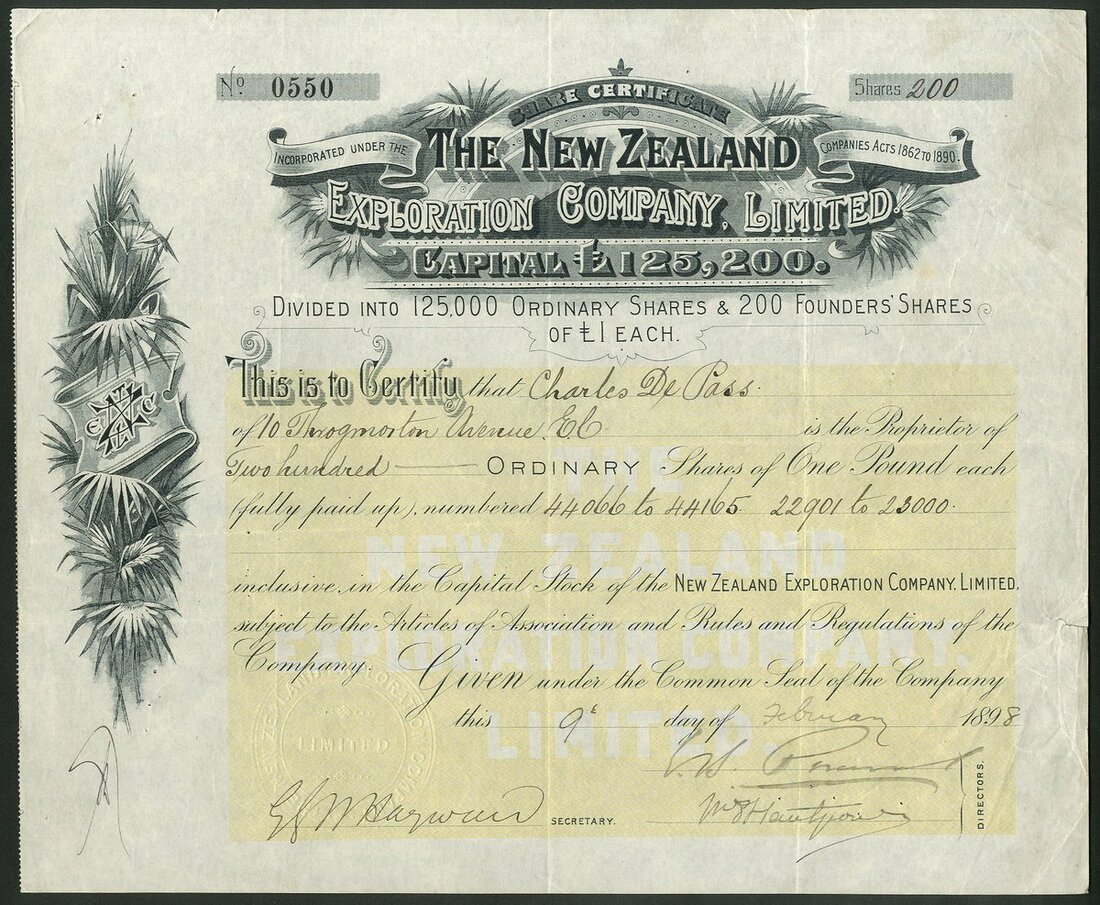 No 0550
Shares 200
SHARE CERTIFICATE
INCORPORATED UNDER THE
COMPANIES ACTS 1862 TO 1890.
THE NEW ZEALAND
EXPLORATION COMPANY, LIMITED.
CAPITAL £125,200.
DIVIDED INTO 125,000 ORDINARY SHARES & 200 FOUNDERS' SHARES
OF £1 EACH.
This is to Certify that Charles De Pass
of 10 Throgmorton Avenue E C is the Proprietor of
Two hundred ORDINARY Shares of One Pound each
(fully paid up), numbered 44066 to 44165 22901 to 23000
inclusive, in the Capital Stock of the NEW ZEALAND EXPLORATION COMPANY, LIMITED,
subject to the Articles of Association and Rules and Regulations of the
Company. Given under the Common Seal of the Company
this 9th day of February 1898
Hayward SECRETARY.
DIRECTORS.
THE
NEW ZEALAND
EXPLORATION COMPANY.
LIMITED.
LIMITED